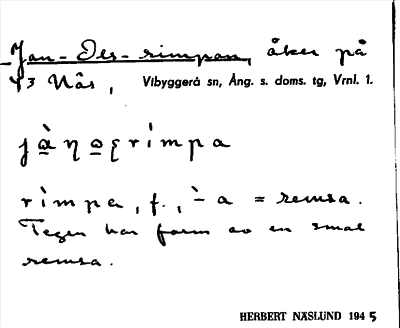 Jan-Ols-rimpan, åker på
43 Näs, Vibyggerå sn, Ång. s. doms. tg, Vrnl. 1.
rimpa, f., `- a = remsa.
Tegen har form av en smal
remsa.
HERBERT NÄSLUND 1945